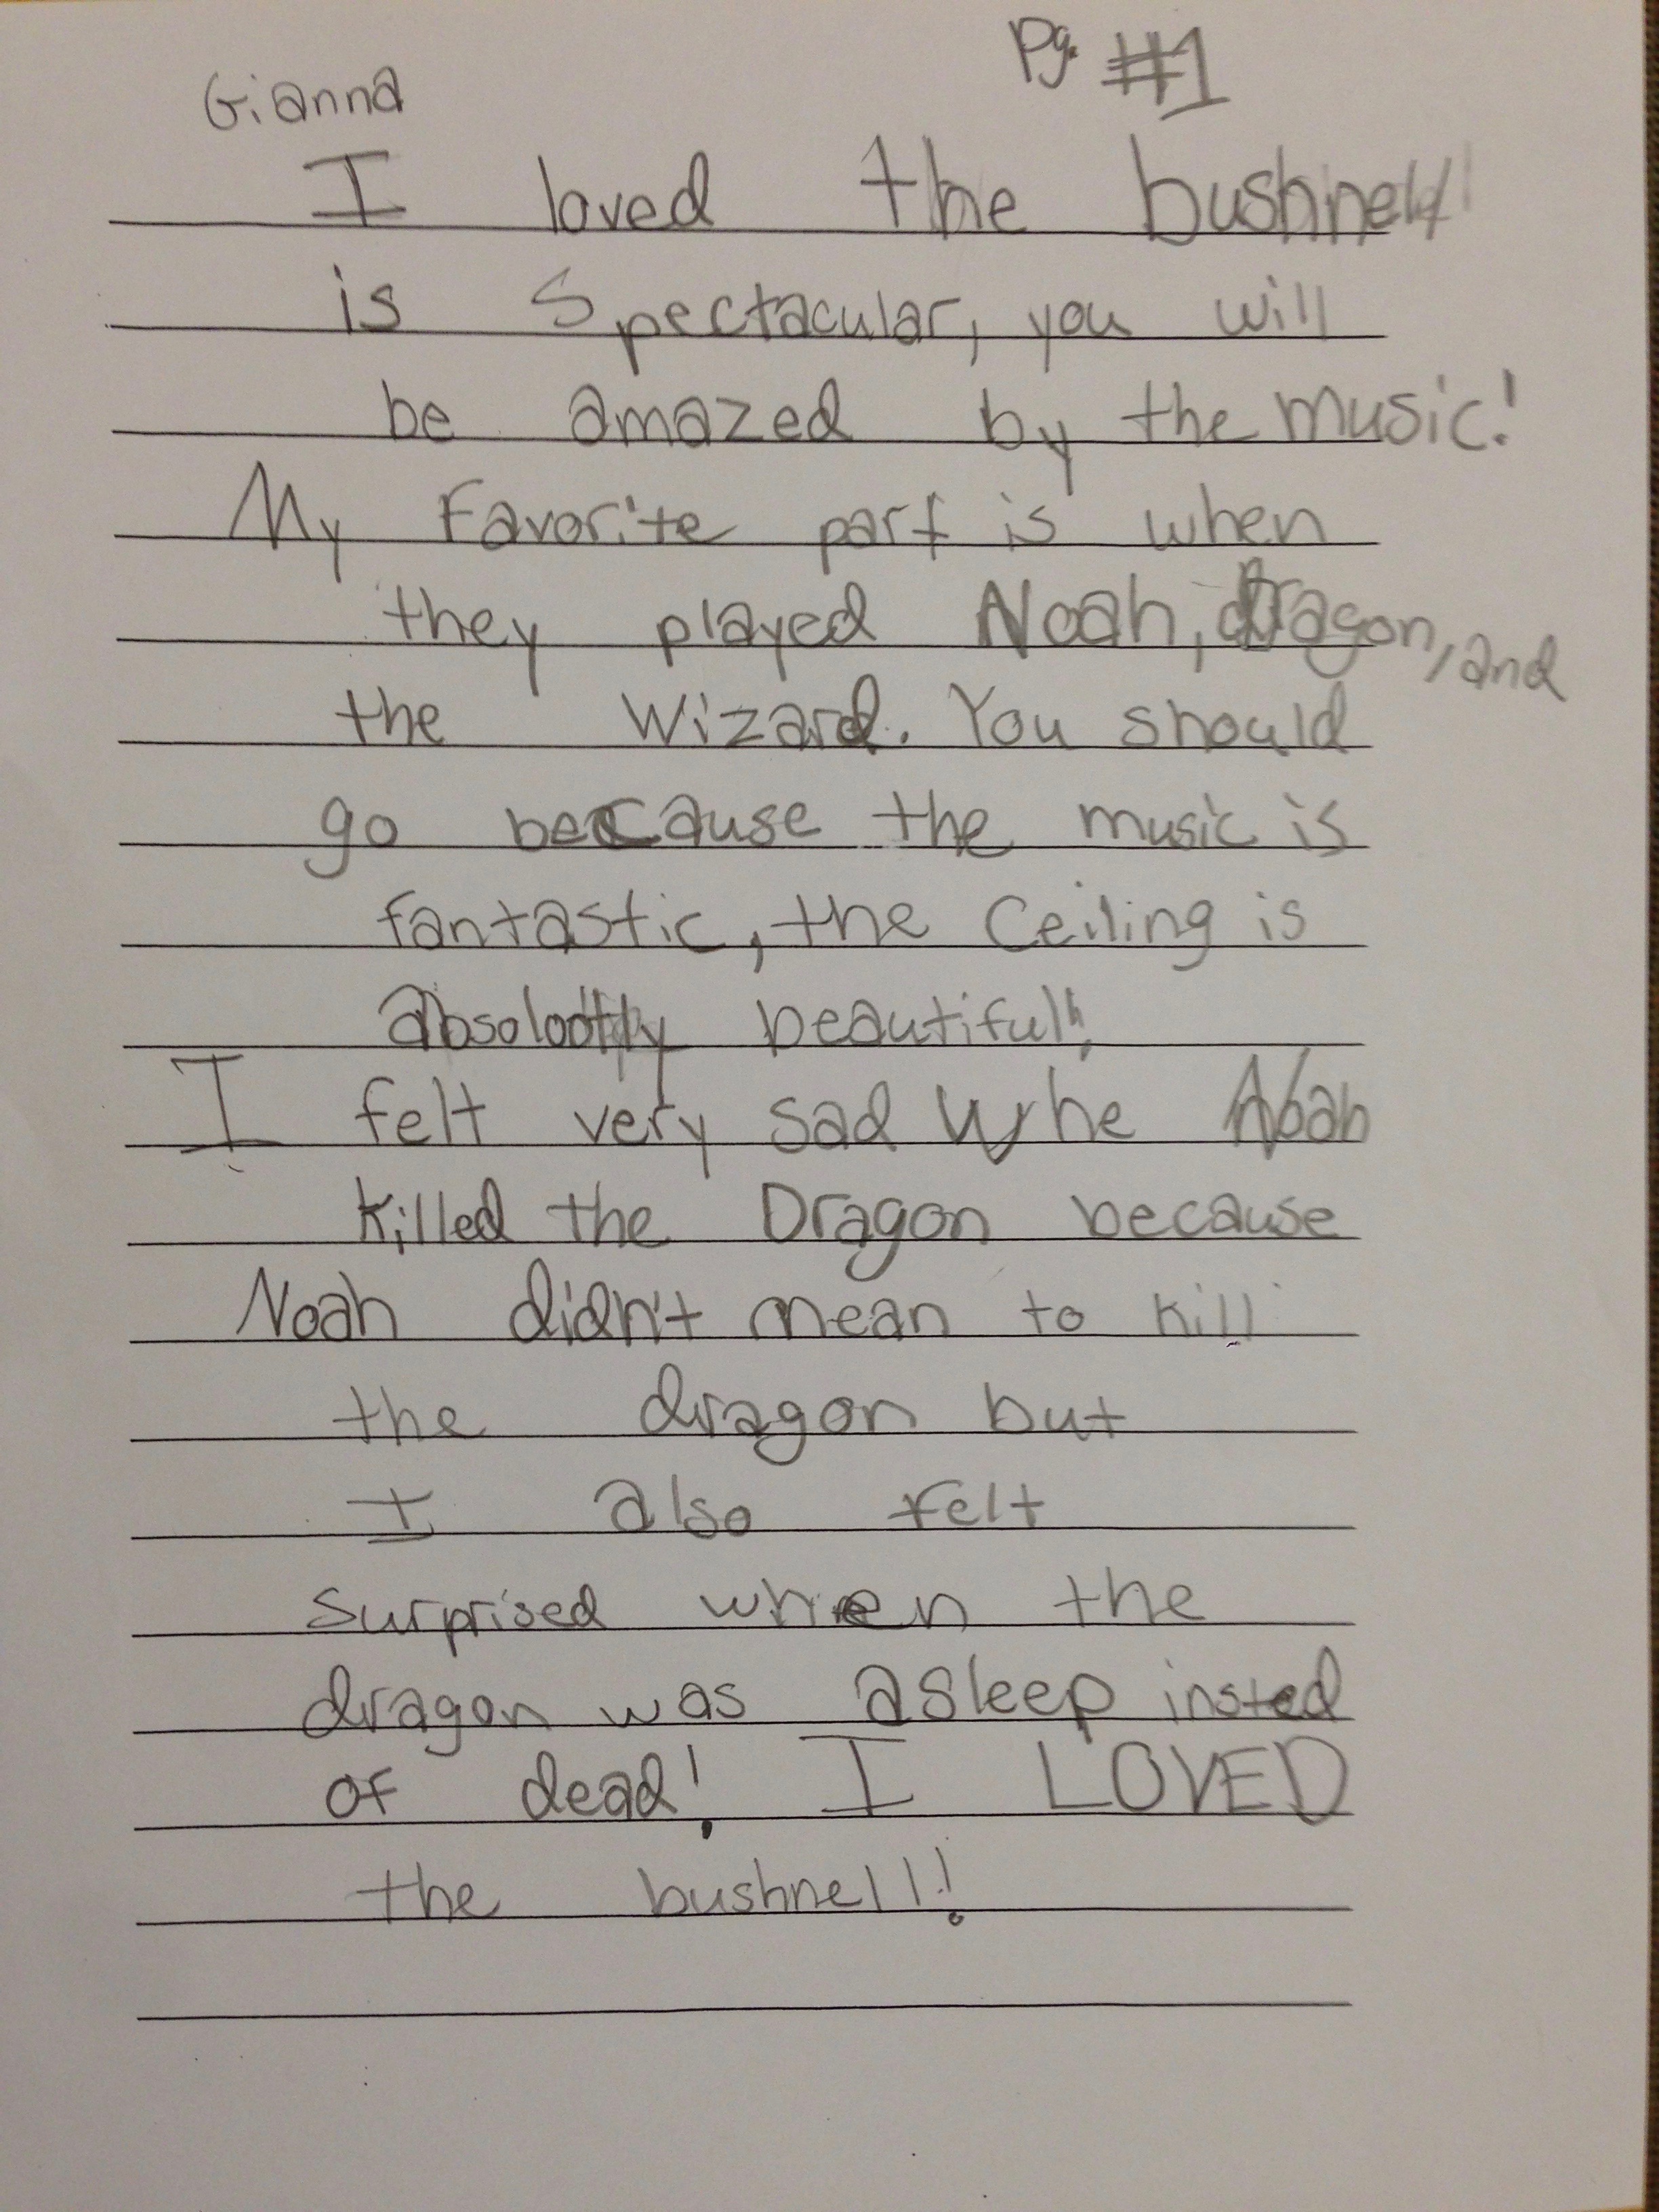 Pg. #1
Gianna
I loved the bushnell
is spectacular, you will
be amazed by the music!
My Favorite part is when
they played Noah, Dragon, and
the Wizard. You should
go because the music is
fantastic, the Ceiling is
absolootly beautiful!
I felt very sad whe Noah
killed the Dragon because
Noah didn't mean to kill
the dragon but
I also felt
surprised when the
dragon was asleep insted
of dead! I LOVED
the bushnell!